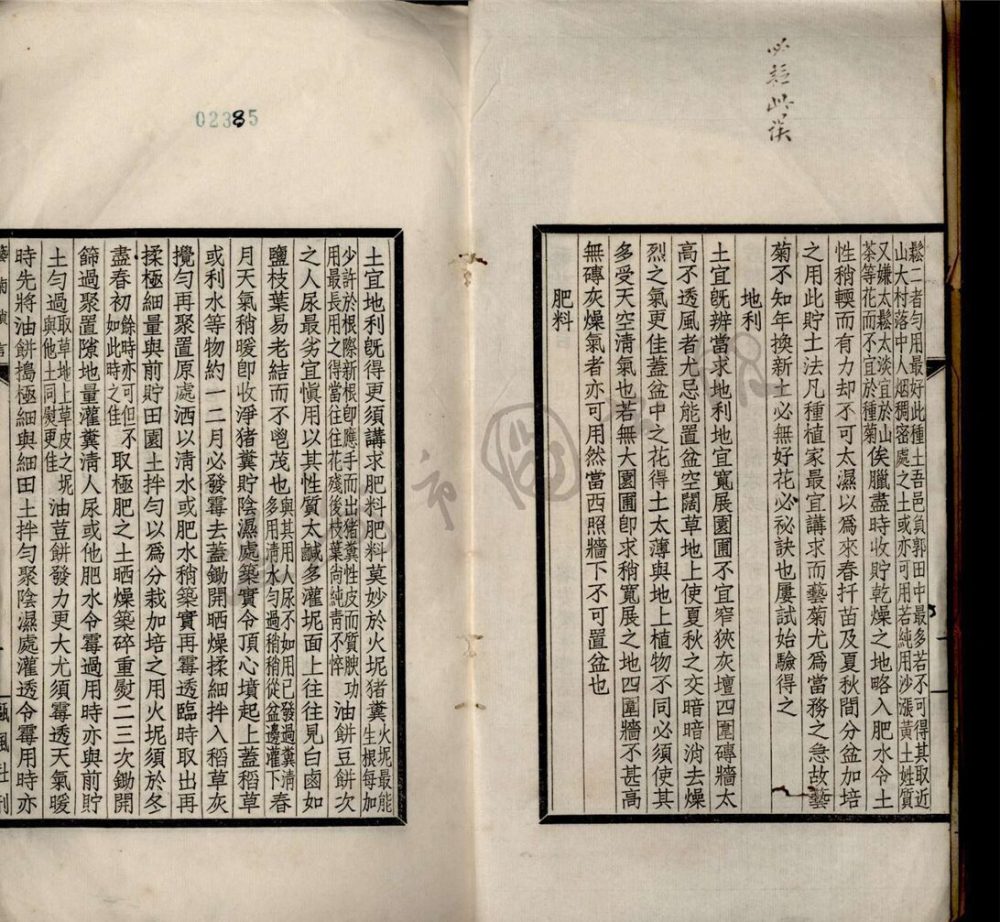 必無此誤
鬆二者勻用最好此種土吾邑負郭田中最多若不可得其取近
山大村落中人烟稠密處之土或亦可用若純用沙漲黃土姓質
又嫌太鬆太淡宜於山
茶等花而不宜於種菊俟臘盡時收貯乾燥之地略入肥水令土
性稍輭而有力却不可太濕以爲來春扦苗及夏秋間分盆加培
之用此貯土法凡種植家最宜講求而藝菊尤爲當務之急故藝
菊不知年換新土必無好花必祕訣也屢試始驗得之
地利
土宜旣辦當求地利地宜寬展園圃不宜窄狹灰壇四圍磚牆太
高不透風者尤忌能置盆空闊草地上使夏秋之交暗暗消去燥
烈之氣更佳蓋盆中之花得土太薄與地上植物不同必須使其
多受天空淸氣也若無大園圃卽求稍寬展之地四圍牆不甚高
無磚灰燥氣者亦可用然當西照牆下不可置盆也
肥料
02385
土宜地利旣得更須講求肥料肥料莫妙於火坭猪糞火坭最能生根每加
少許於根際新根卽應手而出猪糞性皮而質腴功
用最長用之得當往往花殘後枝葉尚純靑不悴油餅豆餅次
之人尿最劣宜愼用以其性質太鹹多灌坭面上往往見白鹵如
鹽枝葉易老結而不鬯茂也與其用人尿不如用已發過糞淸多用淸水勻過稍稍從盆邊灌下春
月天氣稍暖卽收淨猪糞貯陰濕處築實令頂心墳起上蓋稻草
或利水等物約一二月必發霉去蓋鋤開晒燥揉細拌入稻草灰
攪勻再聚置原處洒以淸水或肥水稍築實再霉透臨時取出再
揉極細量與前貯田園土拌勻以爲分栽加培之用火坭須於冬
盡春初餘時亦可但不如此時之佳取極肥之土晒燥築碎重熨二三次鋤開
篩過聚置隙地量灌糞淸人尿或他肥水令霉過用時亦與前貯
土勻過取草地上草皮之坭與他土同熨更佳油荳餅發力更大尤須霉透天氣暖
時先將油餅搗極細與細田土拌勻聚陰濕處灌透令霉用時亦
藝菊瑣言
飄風社刊